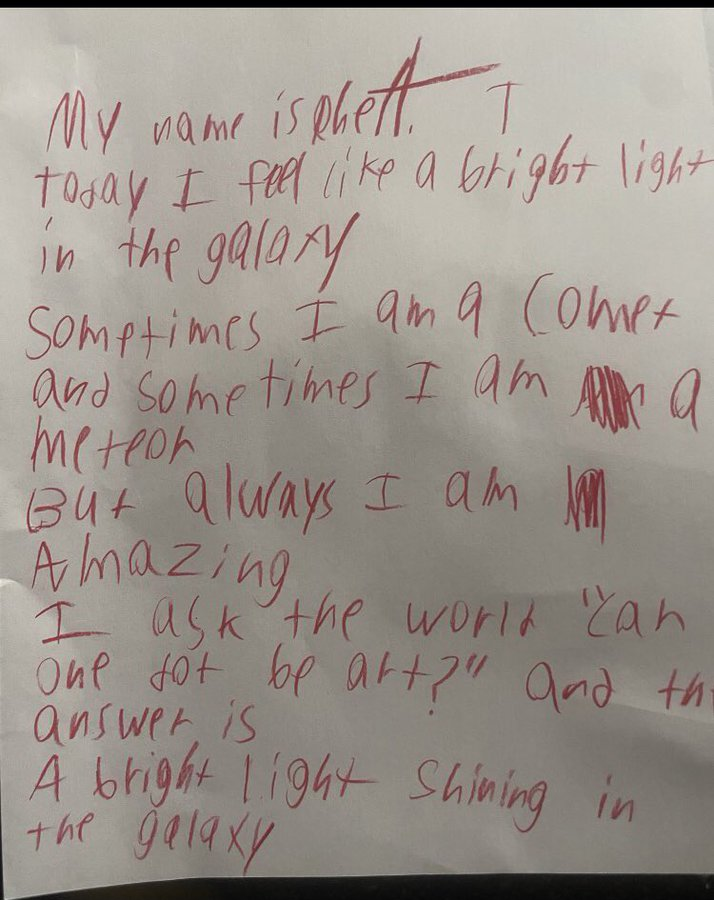 My name is Rhett. T
today I feel like a bright light
in the galaxy
Sometimes I am a Comet
and sometimes I am a
meteor
But always I am
Amazing
I ask the world "can
one dot be art?" and th
answer is
A bright light shining in
the galaxy